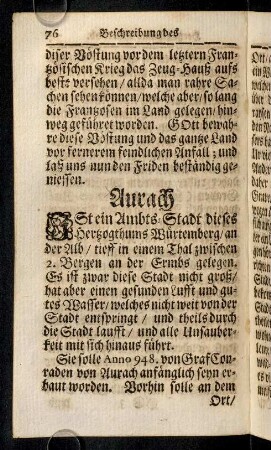 76 Beschreibung des
diser Vöstung vor dem letztern Fran-
tzösischen Krieg das Zeug-Hauß aufs
best versehen / allda man rahre Sa-
chen sehen können / welche aber / so lang
die Frantzosen im Land gelegen / hin-
weg geführet worden. GOtt bewah-
re diese Vöstung und das gantze Land
vor fernerem feindlichen Anfall; und
laß uns nun den Friden beständig ge-
niessen.
Aurach
ISt ein Ambts-Stadt dieses
Hertzogthums Würtemberg / an
der Alb / tieff in einem Thal zwischen
2. Bergen an der Ermbs gelegen.
Es ist zwar diese Stadt nicht groß /
hat aber einen gesunden Lufft und gu-
tes Wasser / welches nicht weit von der
Stadt entspringt / und theils durch
die Stadt laufft / und alle Unsauber-
keit mit sich hinaus führt.
Sie solle Anno 948. von Graf Con-
raden von Aurach anfänglich seyn er-
baut worden. Vorhin solle an dem
Ort /